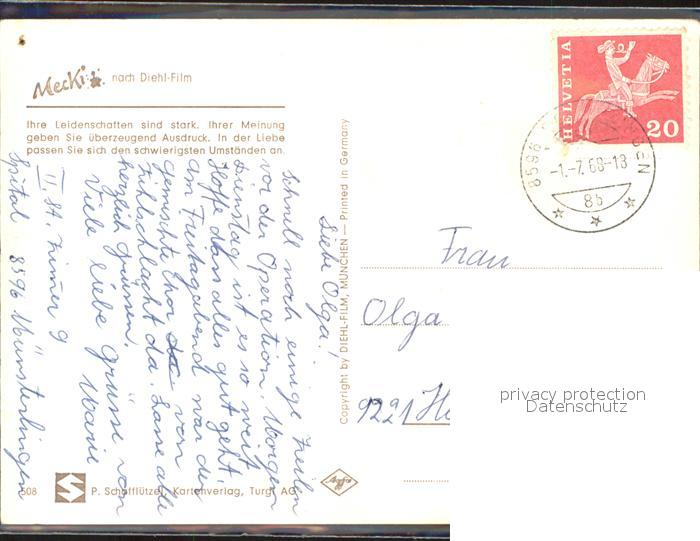 Mecki nach Diehl-Film
Ihre Leidenschaften sind stark. Ihrer Meinung
geben Sie überzeugend Ausdruck. In der Liebe
passen Sie sich den schwierigsten Umständen an.
Liebe Olga!
Schnell noch einige Zeilen
vor der Operation. Morgen
Dienstag ist es so weit.
Hoffe dass alles gut geht!
Am Freitagabend war der
gemischte Chor von
Fruthlschlacht da. Lasse alle
herzlich grüssen.
Viele liebe Grüsse von
Marie
II. St. Zimmer 9
Spital 8596 Münsterlingen
Copyright by DIEHL-FILM, MÜNCHEN — Printed in Germany
HELVETIA
20
8596
-1.-7.68-18
8b
Frau
Olga
9221 He
privacy protection
Datenschutz
508
P. Schafflützel, Kartenverlag, Turgi AG
Agfa